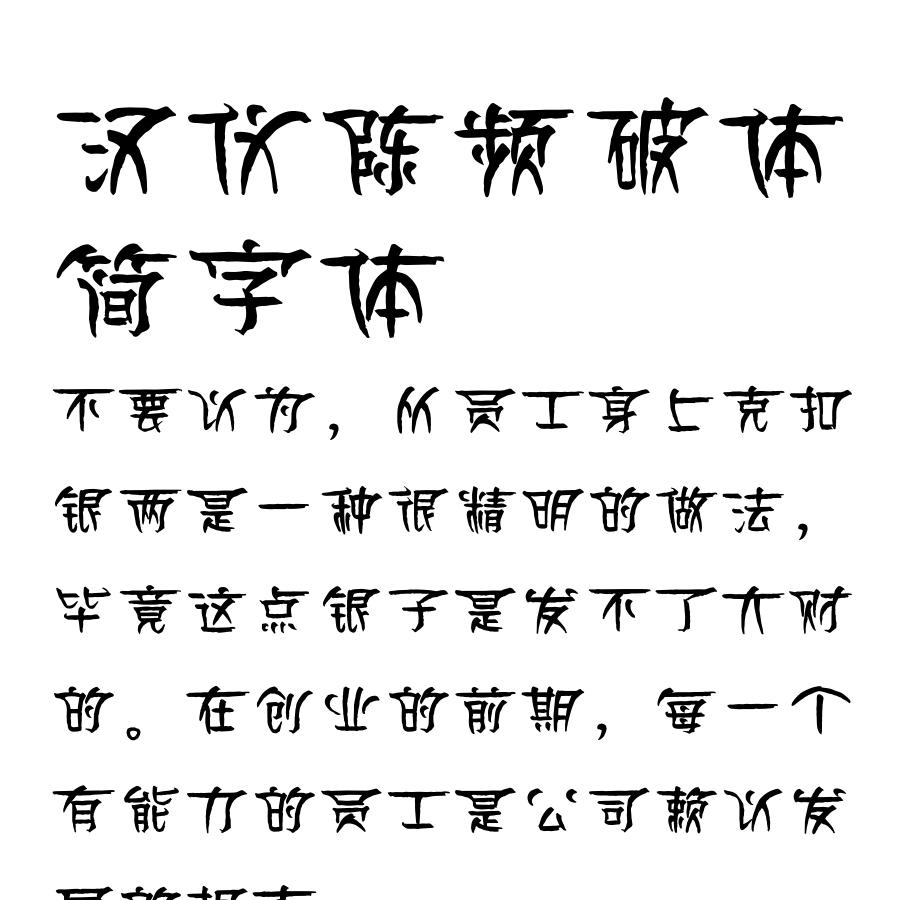 汉仪陈频破体
简字体
不要以为，从员工身上克扣
银两是一种很精明的做法，
毕竟这点银子是发不了大财
的。在创业的前期，每一个
有能力的员工是公司赖以发